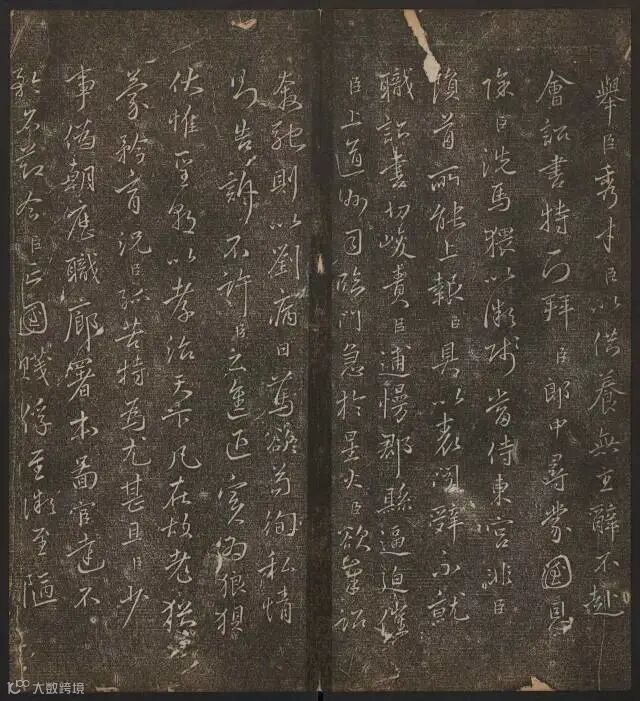 舉臣秀才臣以供養無主辭不赴
會詔書特下拜臣郎中尋蒙國恩
除臣洗馬猥以微賤當侍東宮非臣
隕首所能上報臣具以表聞辭不就
職詔書切峻責臣逋慢郡縣逼迫催
臣上道州司臨門急於星火臣欲奉詔
奔馳則以劉病日篤欲苟徇私情
則告訴不許臣之進退實為狼狽
伏惟聖朝以孝治天下凡在故老猶
蒙矜育況臣孤苦特為尤甚且臣少
事偽朝歷職廊署本圖宦達不
矜名節今臣亡國賤俘至微至陋
大数跨境